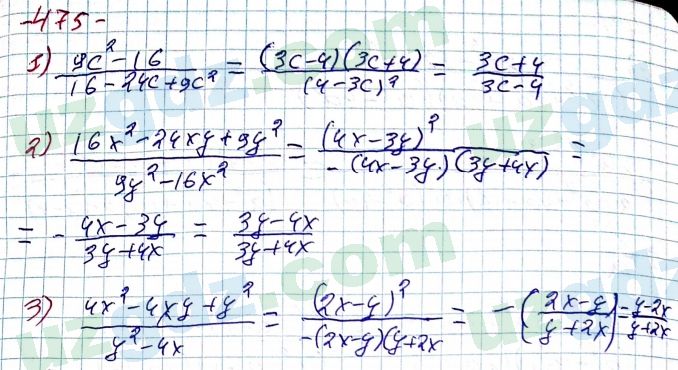 -475-
1) (9c² - 16)/(16 - 24c + 9c²) = ((3c-4)(3c+4))/((4-3c)²) = (3c+4)/(3c-4)
2) (16x² - 24xy + 9y²)/(9y² - 16x²) = ((4x-3y)²)/(-(4x-3y)(3y+4x)) =
= - (4x-3y)/(3y+4x) = (3y-4x)/(3y+4x)
3) (4x² - 4xy + y²)/(y² - 4x) = ((2x-y)²)/(-(2x-y)(y+2x) = -((2x-y)/(y+2x)) = (y-2x)/(y+2x)
uzgdz.com
uzgdz
uzgdz.com
uzgdz